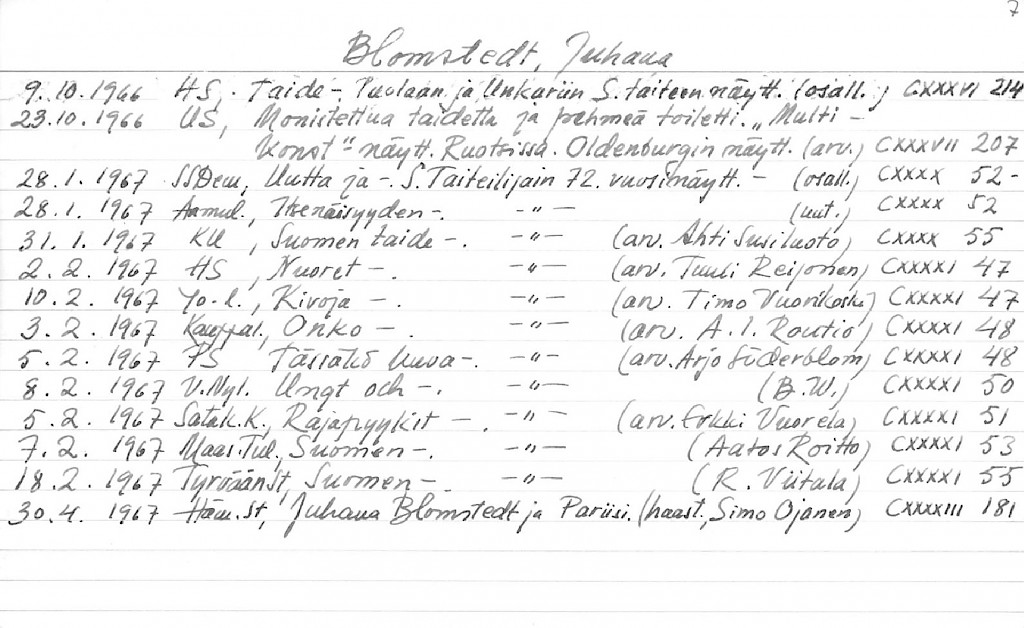 7
Blomstedt, Juhana
9.10.1966 HS, Taide-. Puolaan ja Unkariin S. taiteen näytt. (osall.) CXXXVI 214
23.10.1966 US, Monistettua taidetta ja pehmeä toiletti. „Multi-
konst" näytt. Ruotsissa. Oldenburgin näytt. (arv.) CXXXVII 207
28.1.1967 SSDem, Uutta ja -. S. Taiteilijain 72. vuosinäytt. - (osall.) CXXXX 52-
28.1.1967 Aamul., Itsenäisyyden -. -"- (uut.) CXXXX 52
31.1.1967 KU, Suomen taide -. -"- (arv. Ahti Susiluoto) CXXXX 55
2.2.1967 HS, Nuoret -. -"- (arv. Tuuli Reijonen) CXXXXI 47
10.2.1967 Yo-l., Kivoja -. -"- (arv. Timo Vuorikoski) CXXXXI 47
3.2.1967 Kauppal., Onko -. -"- (arv. A.I. Routio) CXXXXI 48
5.2.1967 PS Tässäkö kuva-. -"- (arv. Arjo Söderblom) CXXXXI 48
8.2.1967 V.Nyl. Ungt och -. -"- (B.W.) CXXXXI 50
5.2.1967 Satak.K., Rajapyykit -. -"- (arv. Erkki Vuorela) CXXXXI 51
7.2.1967 Maas.Tul., Suomen -. -"- (Aatos Roitto) CXXXXI 53
18.2.1967 TyrväänSt, Suomen -. -"- (R. Viitala) CXXXXI 55
30.4.1967 Häm.St, Juhana Blomstedt ja Pariisi. (haast., Simo Ojanen) CXXXXIII 181